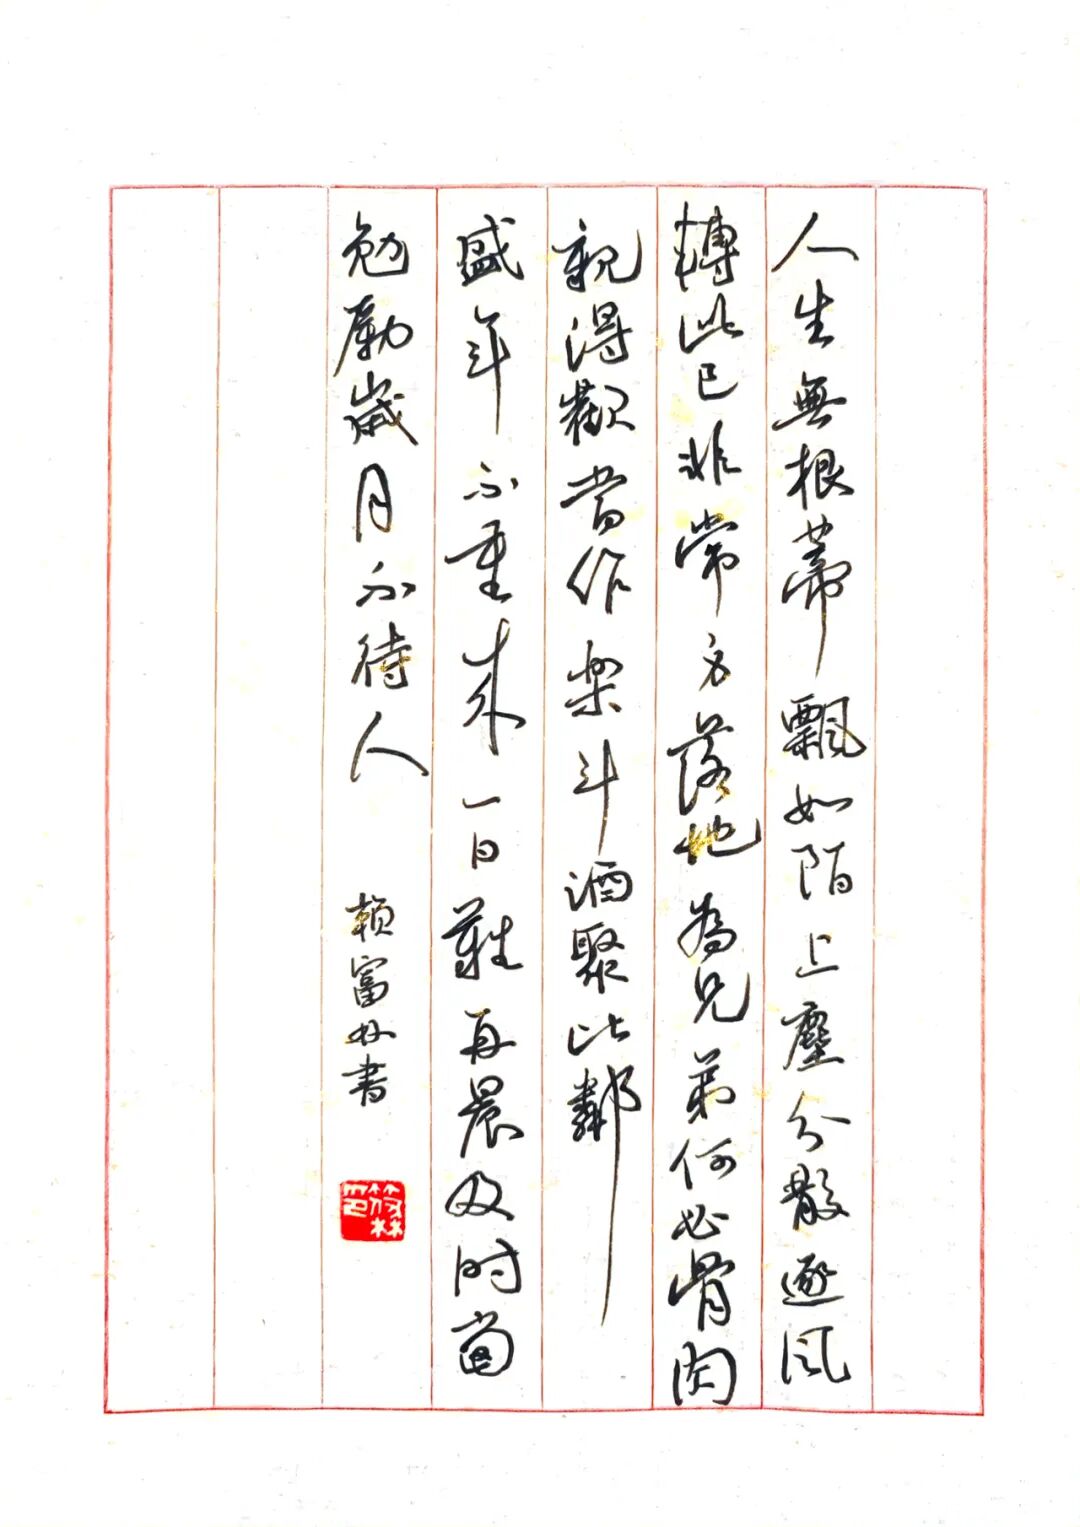 人生無根蒂飄如陌上塵分散逐風
轉此已非常身落地為兄弟何必骨肉
親得歡當作樂斗酒聚比鄰
盛年不重來一日難再晨及时當
勉勵歲月不待人
賴富書